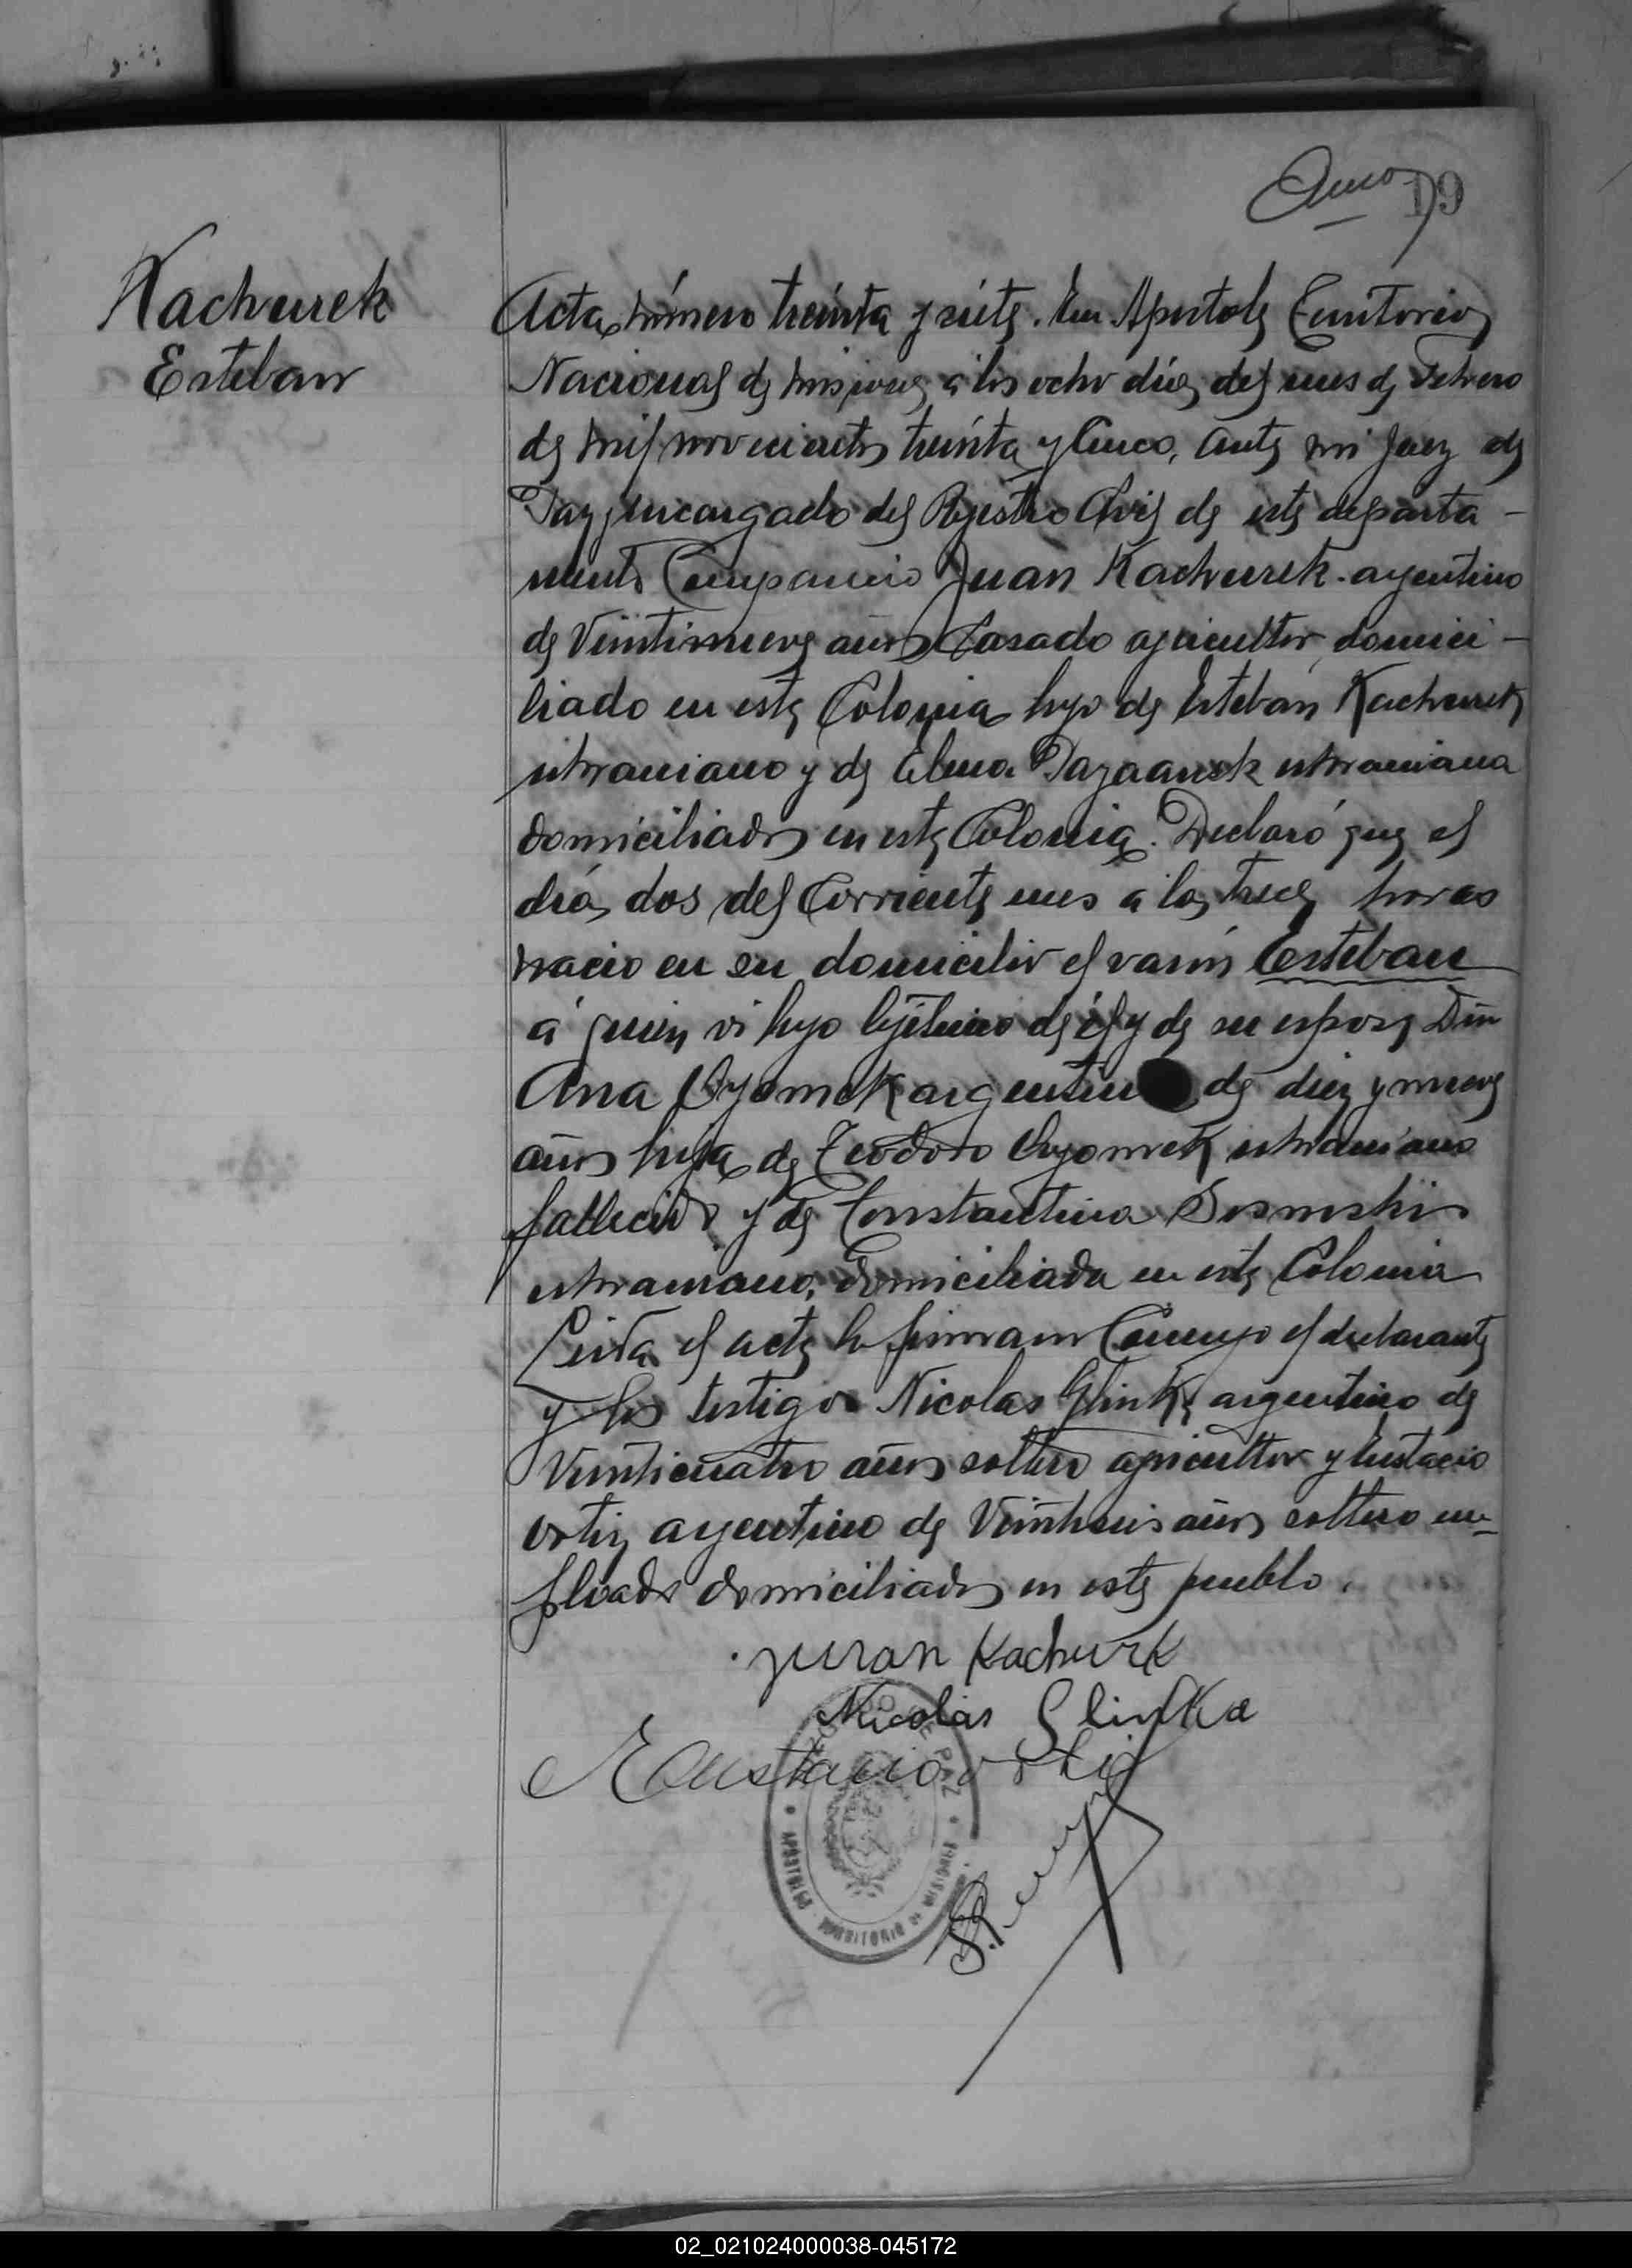 19
Kachurek
Esteban
Acta número treinta y siete. En Apostoles Territorio
Nacional de Misiones, a los ocho días del mes de Febrero
de mil novecientos treinta y cinco, ante mi Juez de
Paz y encargado del Rejistro Civil de este departa-
mento Compareció Juan Kachurek. argentino
de Veintinueve años Casado agricultor, domici-
liado en esta Colonia hijo de Esteban Kachurek
ukraniano y de Elena ukraniana
domiciliados en esta Colonia. Declaró que el
día dos del Corriente mes a las trece horas
nacio en su domicilio el varón Esteban
á quien vi hijo lejítimo de él y de su esposa Dña
Ana argentina de diez y nueve
años hija de Teodoro ukraniano
fallecido y de Constantina
ukraniana, domiciliada en esta Colonia
Leida el acta la firmaron Conmigo el declarante
y los testigos Nicolas Glinka argentino de
Veinticuatro años soltero agricultor y Eustacio
Ortiz argentino de Veintiseis años soltero em-
pleado domiciliados en este pueblo.
Juan Kachurk
Nicolas Glinka
Eustacio Ortiz
JUZGADO DE PAZ
APOSTOLES - MISIONES
02_021024000038-045172